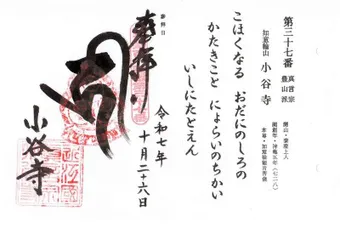 第三十七番 真言宗
豊山派
如意輪山 小谷寺
開山・泰澄上人
開創年・神亀五年(七二八)
本尊・如意輪観世音菩薩
こほくなる おだにのしろの
かたきこと にょらいのちかい
いしにたとえん
令和七年
十月二十六日
参拝日
奉拝
小谷寺